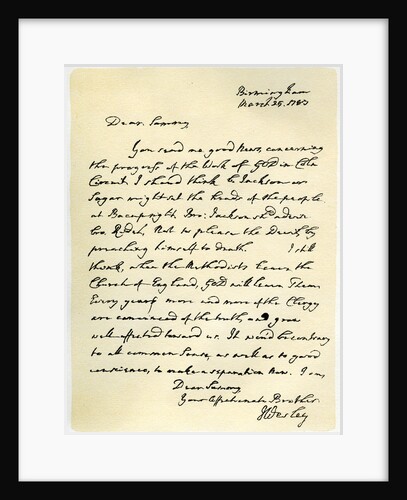 Birmingham
March 25. 1783
Dear Sammy
You send me good News, concerning
the progress of the Work of GOD in Coln
Circuit. I should think Br. Jackson or
Sagar might set the heads of the people
at right. Bro: Jackson shd advise
Bro. Ridel, Not to please the Devil, by
preaching himself to death. I still
think, when the Methodists leave the
Church of England, GOD will leave Them.
Every year more and more of the Clergy
are convinced of the truth, and grow
well-affected toward us. It wou'd be contrary
to all common Sense, as well as to good
conscience, to make a separation Now. I am,
Dear Sammy
Your Affectionate Brother
JWesley